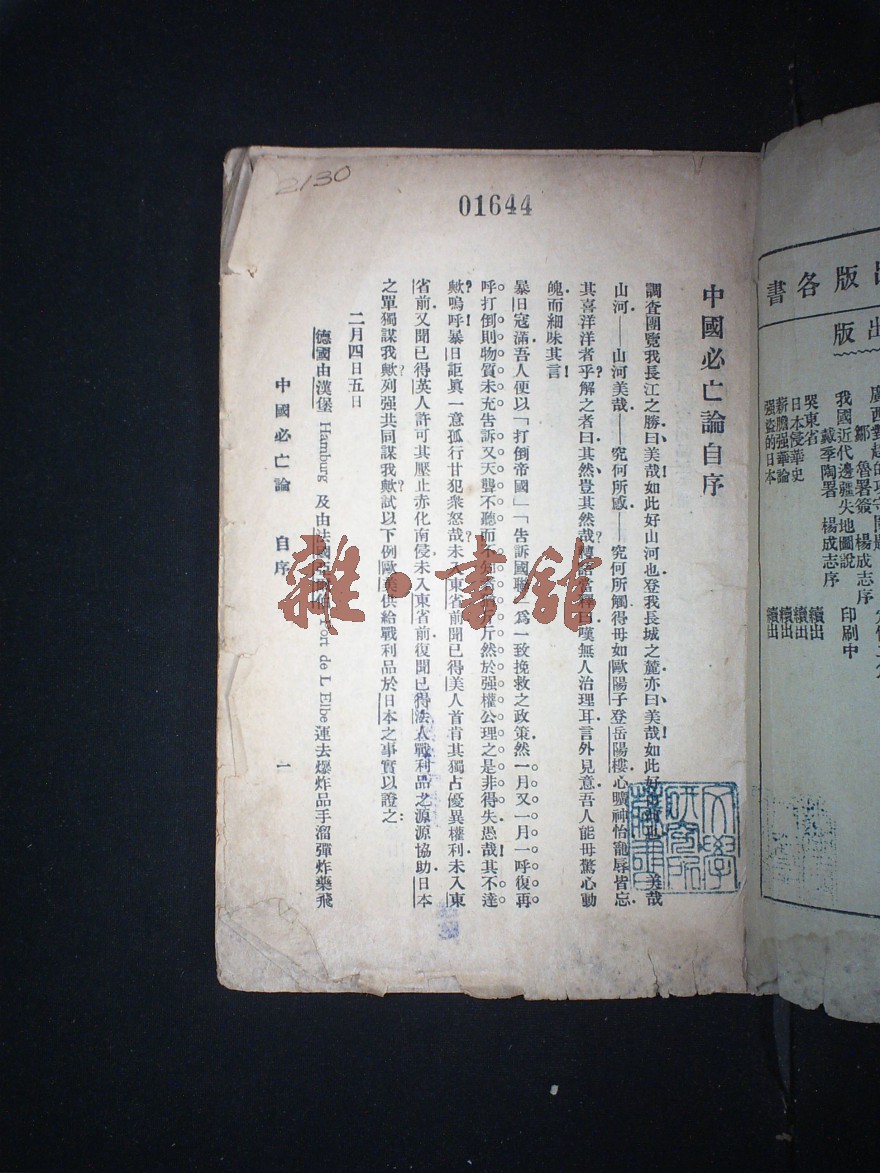 2130
01644
中國必亡論自序
調查團覽我長江之勝曰美哉如此好山河也登我長城之麓亦曰美哉如此好
美哉
山河——山河美哉——究何所感——究何所觸得毋如歐陽子登岳陽樓心曠神怡寵辱皆忘
其喜洋洋者乎解之者曰其然豈其然哉
嘆無人治理耳言外見意吾人能毋驚心動
魄而細味其言
暴日寇滿吾人便以「打倒帝國」「告訴國聯」爲一致挽救之政策然一月又一月一呼復再
呼打倒則物質未充告訴又天聾不聽而不知
斤然於强權公理之是非得失愚哉其不達
歟嗚呼暴日詎眞一意孤行甘犯衆怒哉未入東省前聞已得美人首肯其獨占優異權利未入東
省前又聞已得英人許可其壓止赤化南侵未入東省前復聞已得法人戰利品之源源協助日本
之單獨謀我歟列强共同謀我歟試以下例歐美供給戰利品於日本之事實以證之:
二月四日五日
德國由漢堡 Hamburg 及由法國
Port de L Elbe 運去爆炸品手溜彈炸藥飛
中國必亡論 自序 一
文學研究所
雜·書館
版各書
出版
鄒魯署簽 楊成志序
我國近代邊疆失地圖說 印刷中
戴季陶署 楊成志序
哭東省 續出
日本侵華史 續出
新膽强華論 續出
强盜的日本 續出